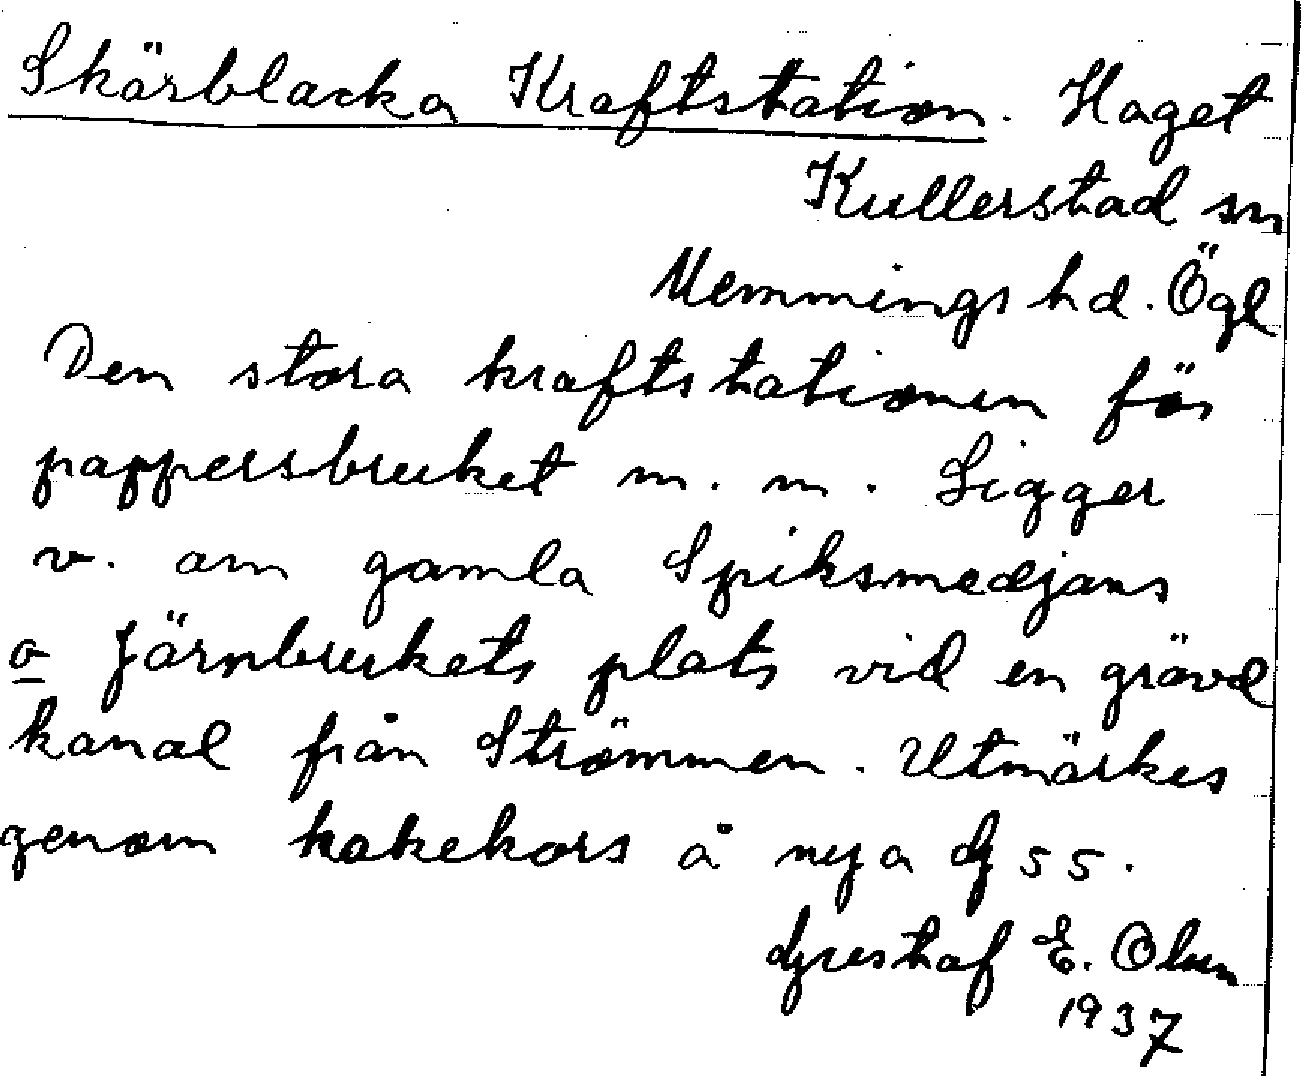 Skärblacka Kraftstation. Haget
Kullerstad sn
Memmings hd. Ögl
Den stora kraftstationen för
pappersbruket m. m. Ligger
v. om gamla Spiksmedjans
o Järnbrukets plats vid en grävd
kanal från Strömmen. Utmärkes
genom hakekors å nya G 55.
Gustaf E. Olsen
1937